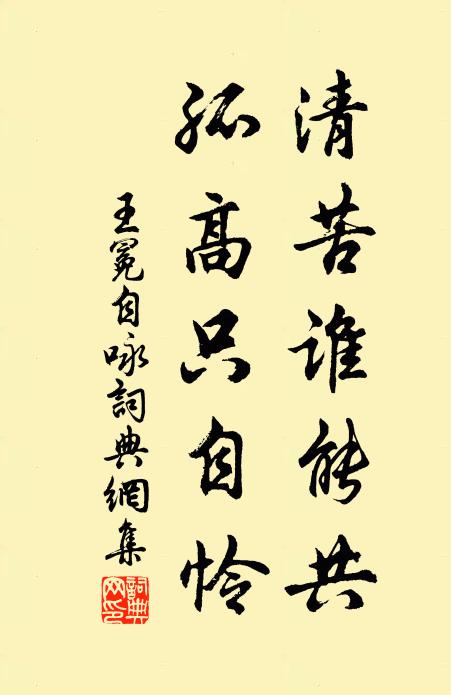 清苦誰能共
孤高只自怜
王冕自咏詞典網集
詞典网印